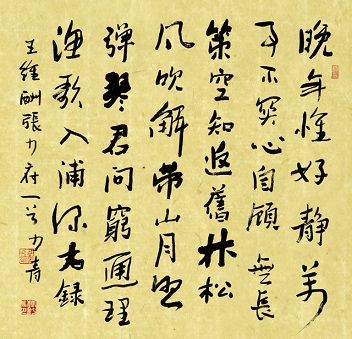 晚年惟好靜萬
事不関心自顧無長
策空知返舊林松
風吹解带山月照
彈琴君問窮通理
漁歌入浦深右錄
王維酬張少府一首